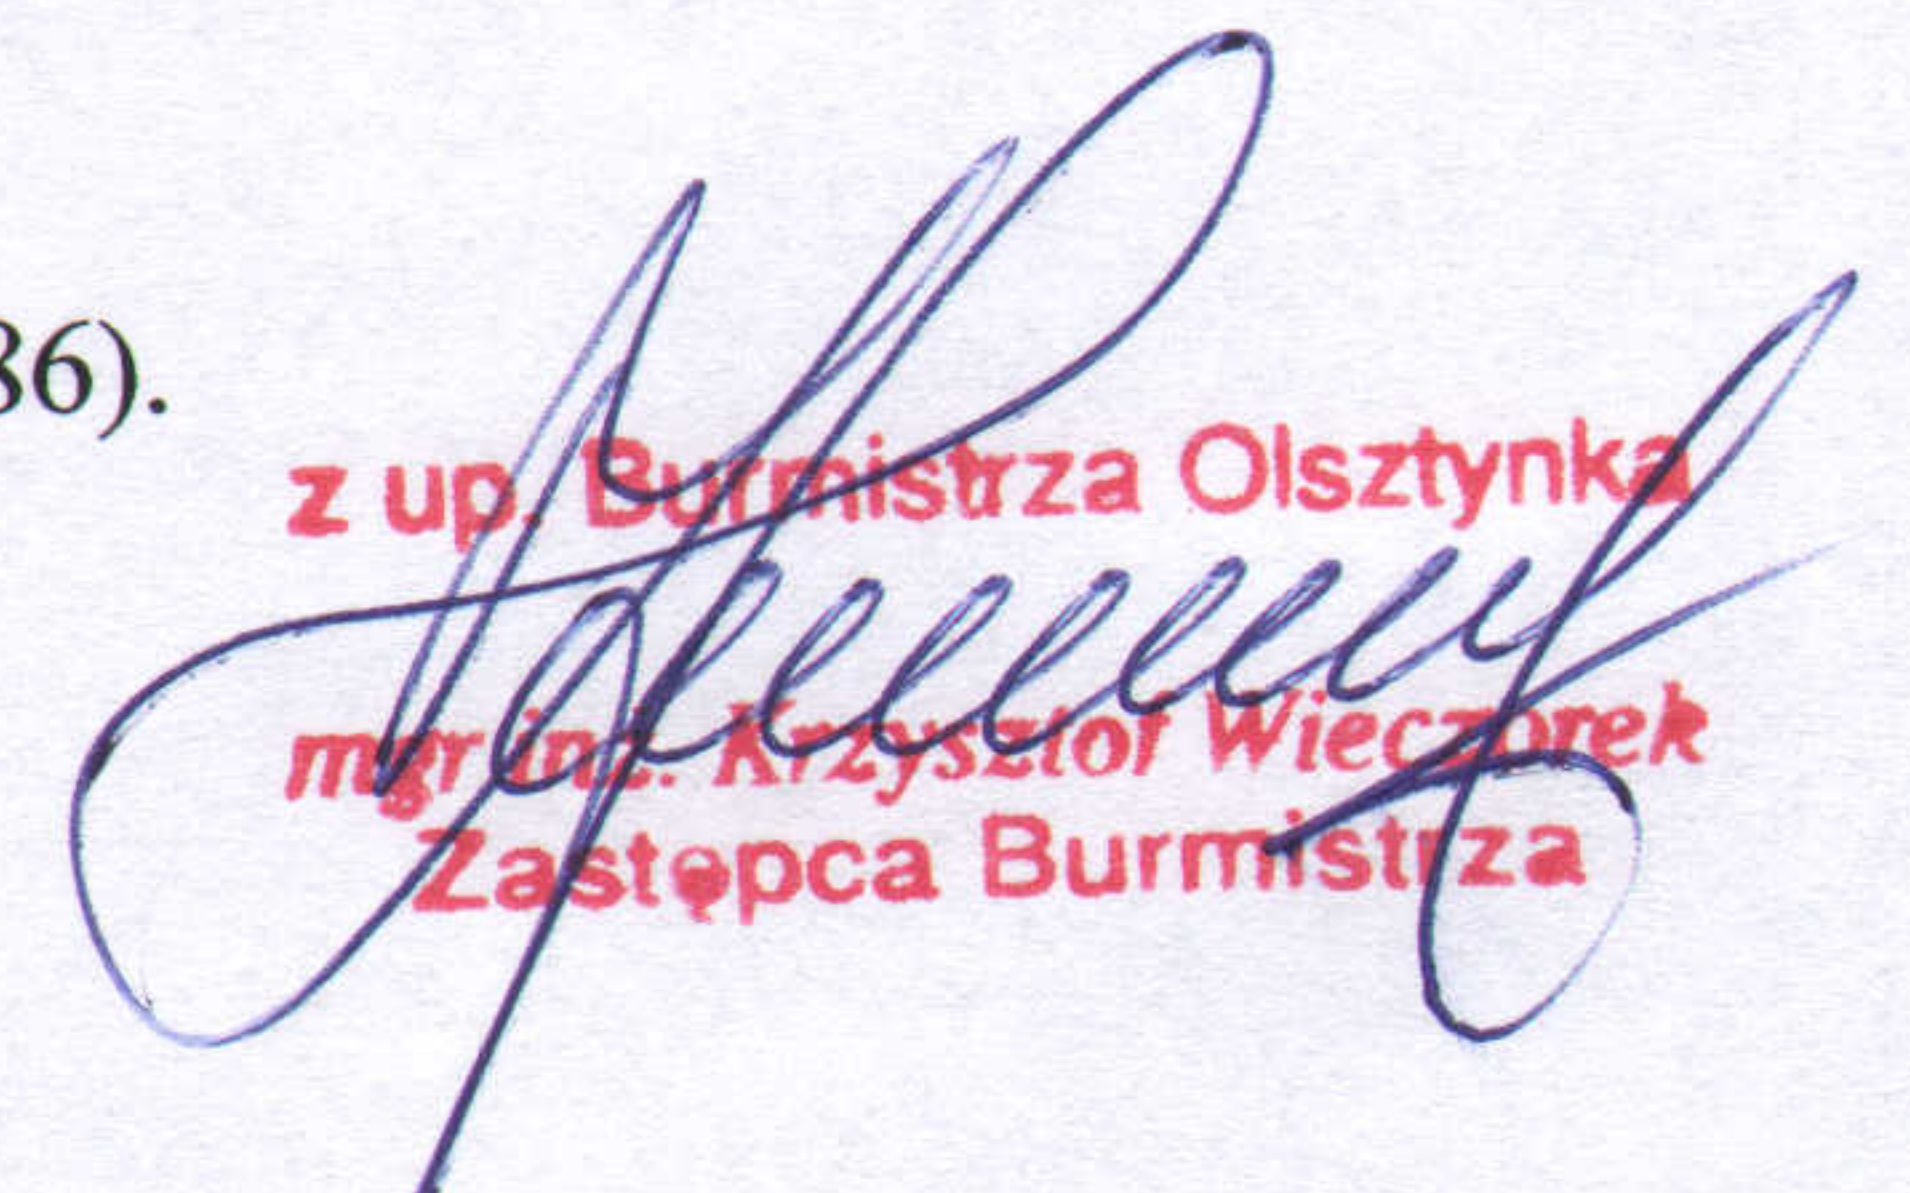 36).
z up. Burmistrza Olsztynka
mgr inż. Krzysztof Wieczorek
Zastępca Burmistrza